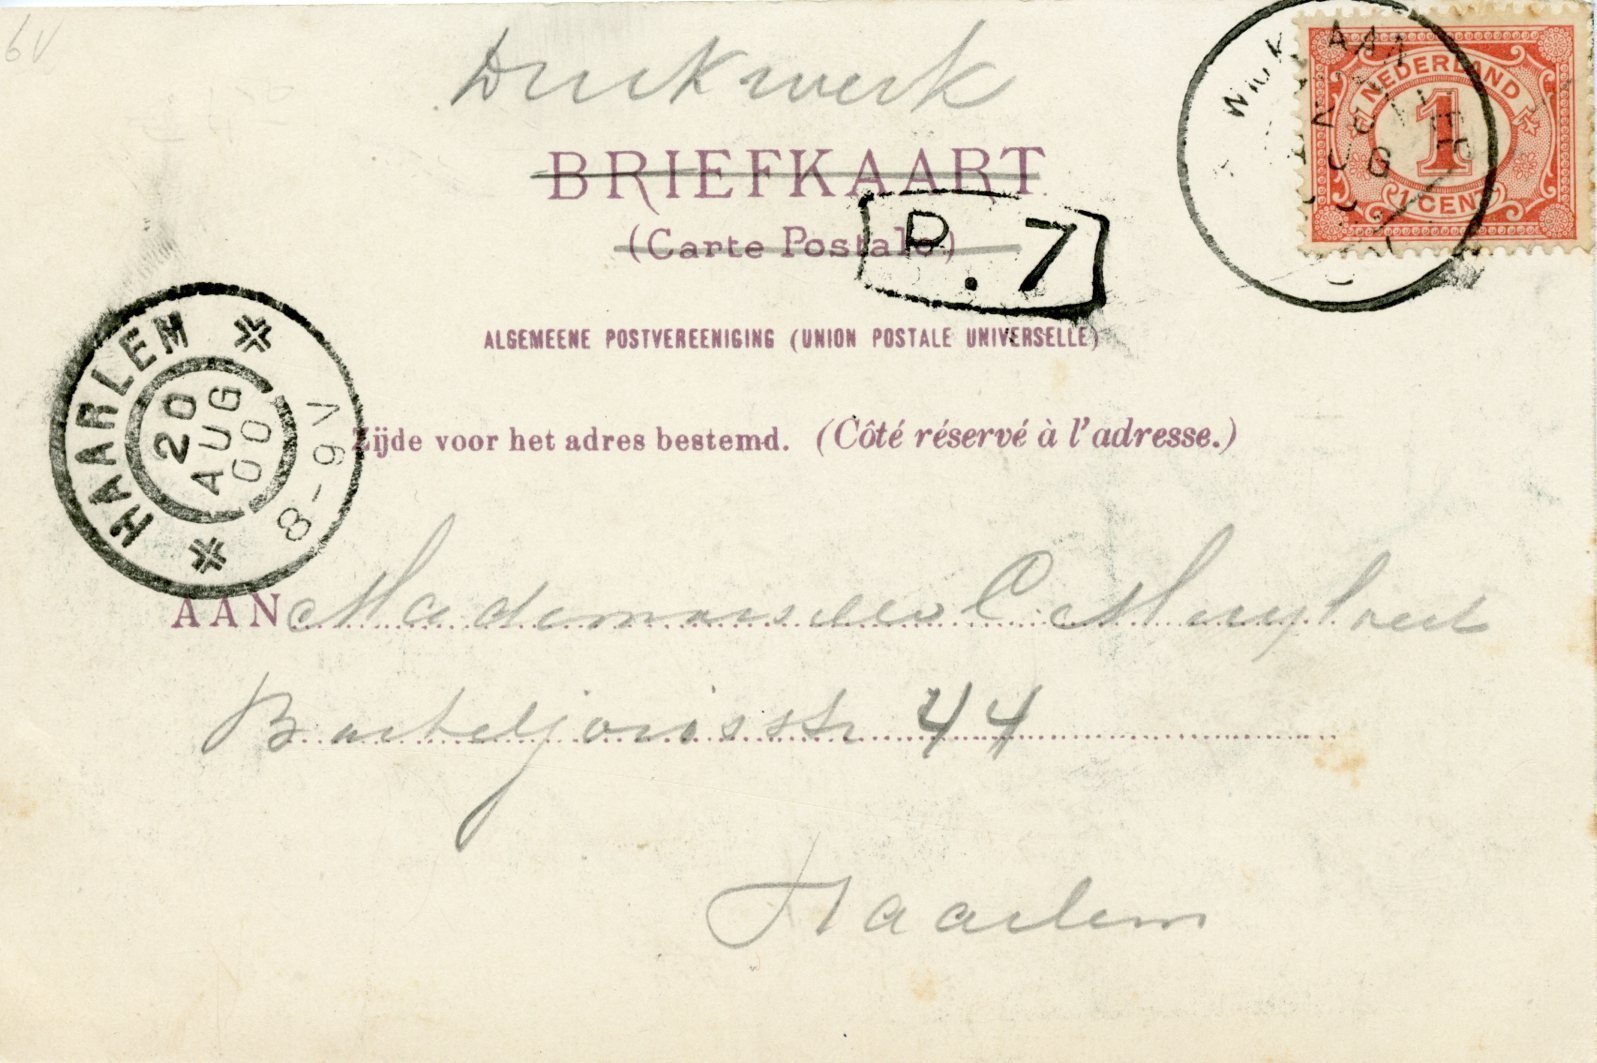 6V
Drukwerk
BRIEFKAART
(Carte Postale)
P. 7
ALGEMEENE POSTVEREENIGING (UNION POSTALE UNIVERSELLE)
Zijde voor het adres bestemd. (Côté réservé à l'adresse.)
HAARLEM
20
AUG
00
8-9V
NEDERLAND
1
1 CENT
WIJK AAN
AUG
AAN Mademoiselle C
Barteljorisstr 44
Haarlem